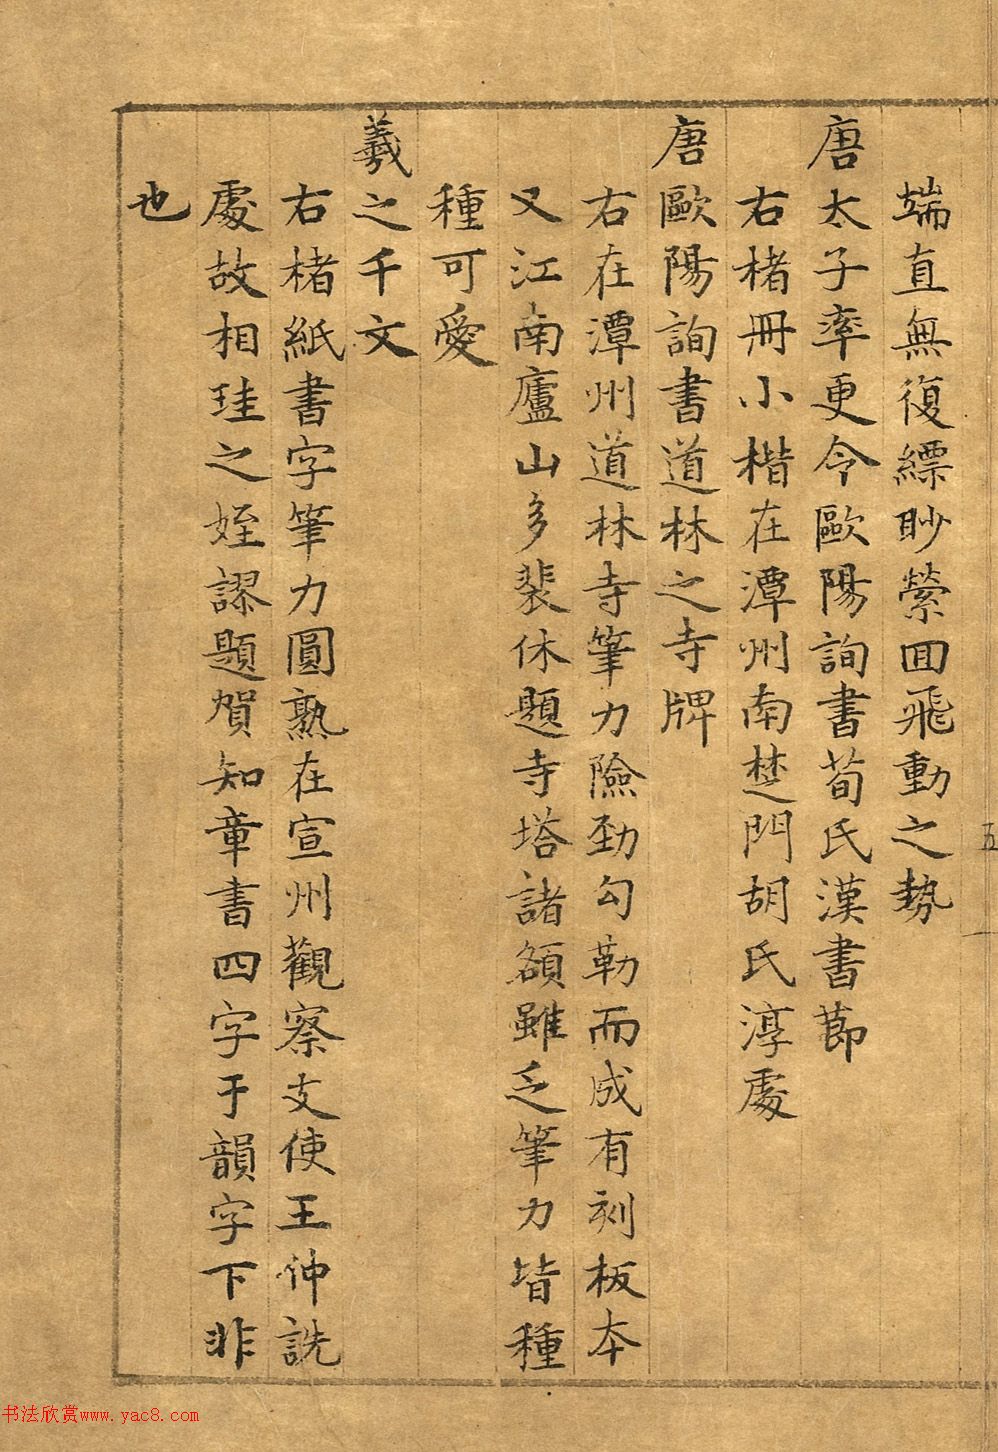 端直無復縹眇縈回飛動之勢
唐太子率更令歐陽詢書荀氏漢書莭
右楮冊小楷在潭州南楚門胡氏淳處
唐歐陽詢書道林之寺牌
右在潭州道林寺筆力險勁勾勒而成有刻板本
又江南廬山多裴休題寺塔諸額雖乏筆力皆種
種可愛
羲之千文
右楮紙書字筆力圓熟在宣州觀察支使王仲詵
處故相珪之姪謬題賀知章書四字于韻字下非
也
五
书法欣赏www.yac8.com